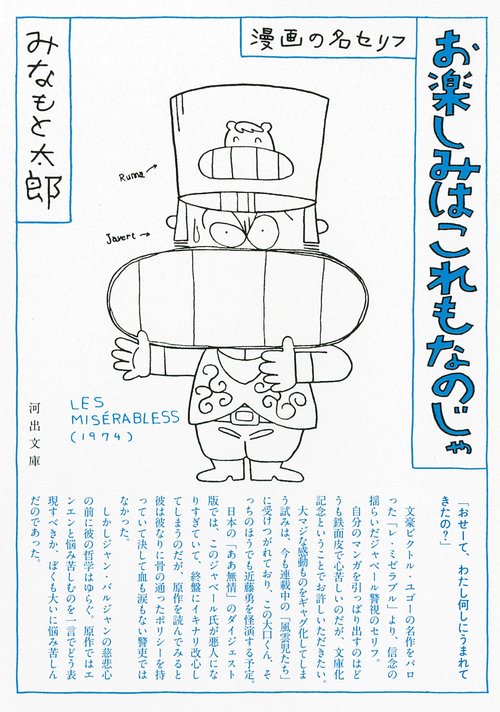 お楽しみはこれもなのじゃ
漫画の名セリフ
みなもと太郎
Ruma→
Javert→
LES
MISÉRABLESS
(1974)
河出文庫
「おせーて、わたし何しにうまれて
きたの?」
文豪ビクトル・ユゴーの名作をパロ
った「レ・ミゼラブル」より、信念の
揺らいだジャベール警視のセリフ。
自分のマンガを引っぱり出すのはど
うも鉄面皮で心苦しいのだが、文庫化
記念ということでお許しいただきたい。
大マジな感動ものをギャグ化してしま
う試みは、今も連載中の「風雲児たち」
に受けつがれており、この大口くん、そ
っちのほうでも近藤勇を怪演する予定。
日本の「ああ無情」のダイジェスト
版では、このジャベール氏が悪人にな
りすぎていて、終盤にイキナリ改心し
てしまうのだが、原作を読んでみると
彼は彼なりに骨の通ったポリシーを持
っていて決して血も涙もない警吏では
なかった。
しかしジャン・バルジャンの慈悲心
の前に彼の哲学はゆらぐ。原作ではエ
ンエンと悩み苦しむものを一言でどう表
現すべきか、ぼくも大いに悩み苦しん
だのであった。